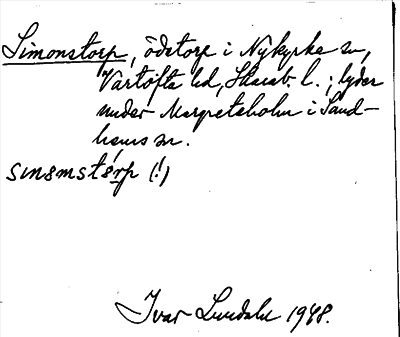 Simonstorp, ödetorp i Nykyrka sn,
Vartofta hd, Skarab. l.; lyder
under Margreteholm i Sand-
hems sn.
smsmstɵrp (!)
Ivar Lundahl 1948.